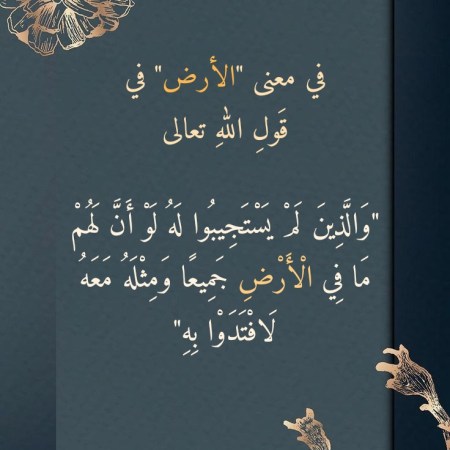 في معنى "الأرض" في
قَولِ اللهِ تعالى
"وَالَّذِينَ لَمْ يَسْتَجِيبُوا لَهُ لَوْ أَنَّ لَهُمْ
مَا فِي الْأَرْضِ جَمِيعًا وَمِثْلَهُ مَعَهُ
لَافْتَدَوْا بِهِ"